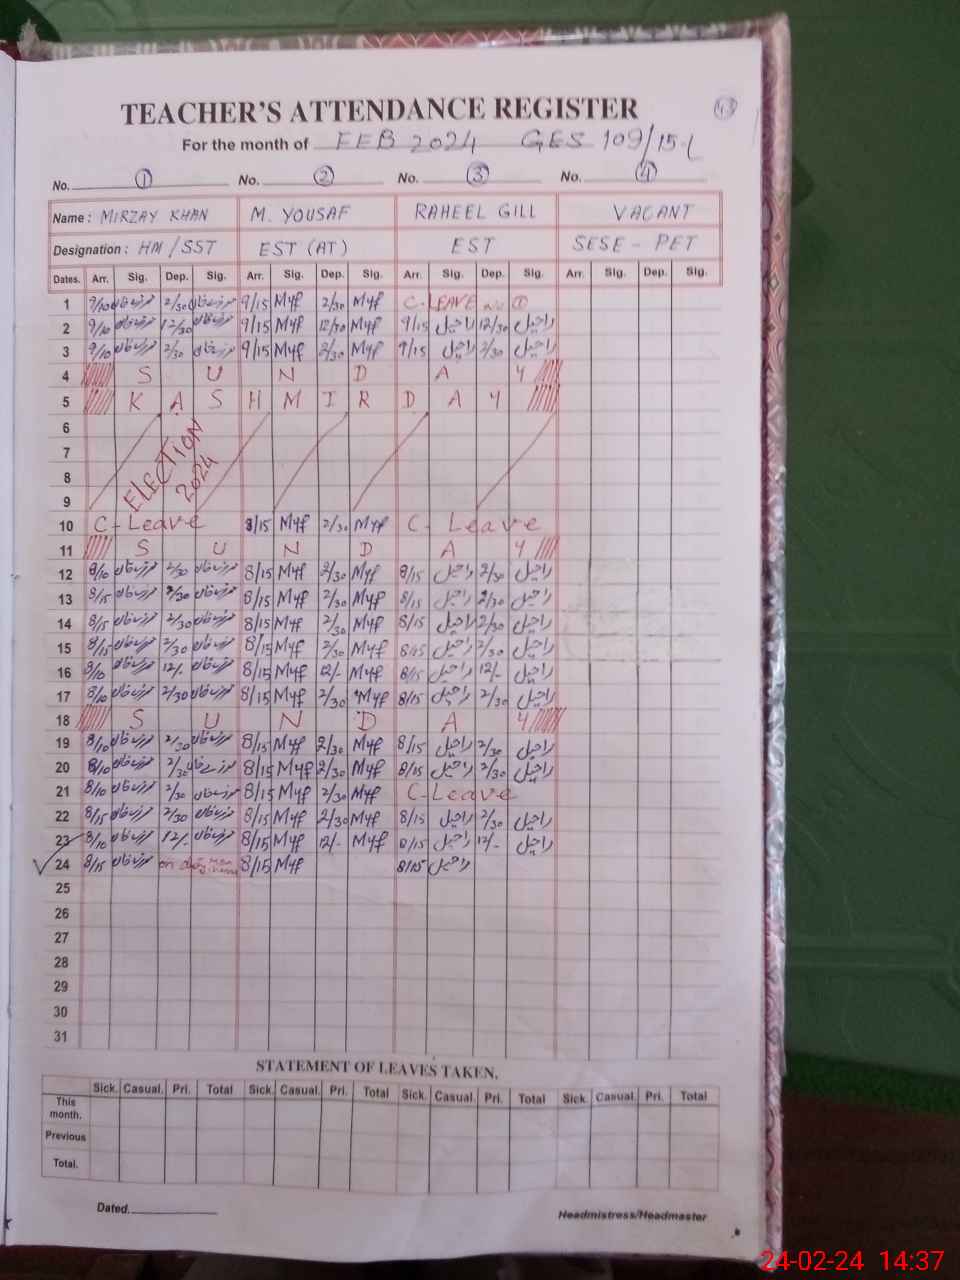 43
TEACHER'S ATTENDANCE REGISTER
For the month of FEB 2024 GES 109/15-L
No. 1 No. 2 No. 3 No. 4
Name : MIRZAY KHAN M. YOUSAF RAHEEL GILL VACANT
Designation : HM/SST EST (AT) EST SESE - PET
Dates. Arr. Sig. Dep. Sig. Arr. Sig. Dep. Sig. Arr. Sig. Dep. Sig. Arr. Sig. Dep. Sig.
1 9/10 2/30 9/15 Myf 2/30 Myf C-LEAVE
2 9/10 12/30 9/15 Myf 12/30 Myf 9/15 راحیل 12/30 راحیل
3 9/10 2/30 9/15 Myf 2/30 Myf 9/15 راحیل 2/30 راحیل
4 S U N D A Y
5 K A S H M I R D A Y
6
7 ELECTION
8 2024
9
10 C-Leave 8/15 Myf 2/30 Myf C-Leave
11 S U N D A Y
12 8/10 2/30 8/15 Myf 2/30 Myf 8/15 راحیل 2/30 راحیل
13 8/15 2/30 8/15 Myf 2/30 Myf 8/15 راحیل 2/30 راحیل
14 8/15 2/30 8/15 Myf 2/30 Myf 8/15 راحیل 2/30 راحیل
15 8/15 2/30 8/15 Myf 2/30 Myf 8/15 راحیل 2/30 راحیل
16 8/10 12/- 8/15 Myf 12/- Myf 8/15 راحیل 12/- راحیل
17 8/10 2/30 8/15 Myf 2/30 Myf 8/15 راحیل 2/30 راحیل
18 S U N D A Y
19 8/10 2/30 8/15 Myf 2/30 Myf 8/15 راحیل 2/30 راحیل
20 8/10 2/30 8/15 Myf 2/30 Myf 8/15 راحیل 2/30 راحیل
21 8/10 2/30 8/15 Myf 2/30 Myf C-Leave
22 8/15 2/30 8/15 Myf 2/30 Myf 8/15 راحیل 2/30 راحیل
23 8/10 12/- 8/15 Myf 12/- Myf 8/15 راحیل 12/- راحیل
24 8/15 on duty 8/15 Myf 8/15 راحیل
25
26
27
28
29
30
31
STATEMENT OF LEAVES TAKEN.
Sick. Casual. Pri. Total Sick. Casual. Pri. Total Sick. Casual. Pri. Total Sick. Casual. Pri. Total
This month.
Previous
Total.
Dated. Headmistress/Headmaster
24-02-24 14:37